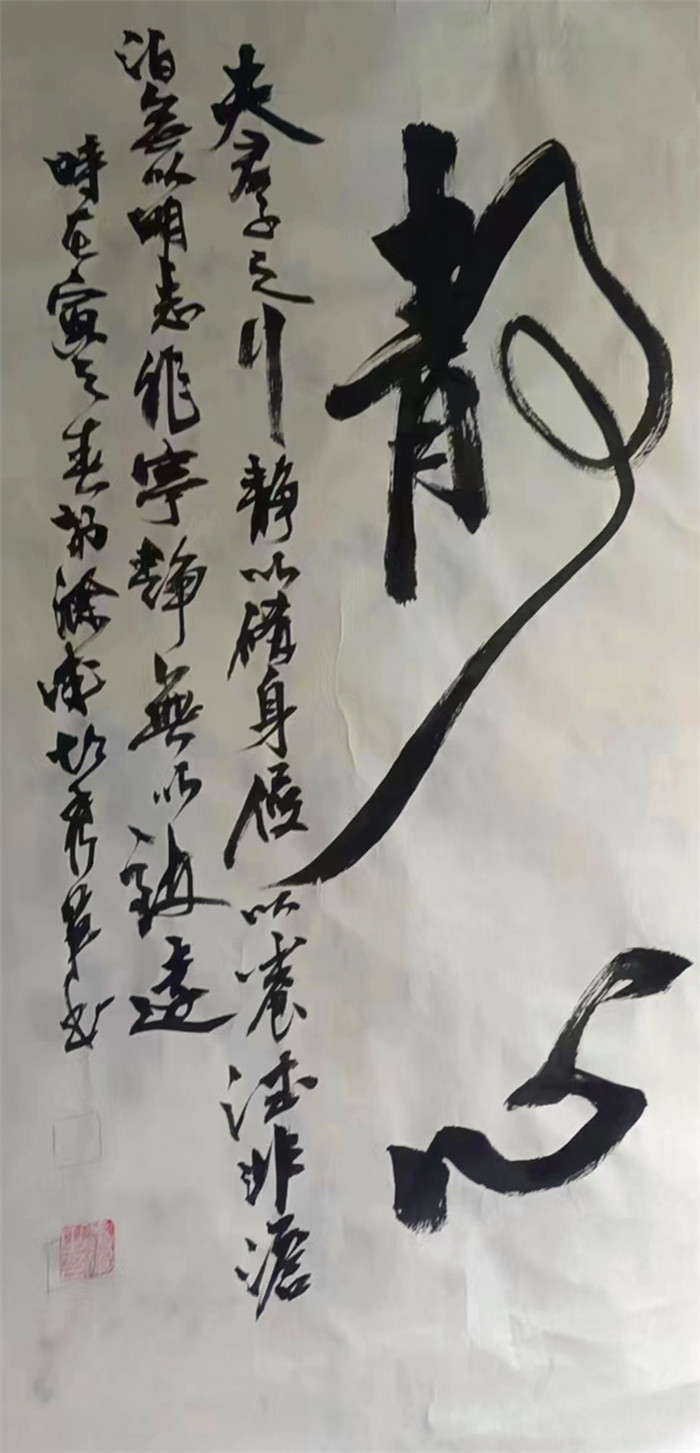 静心
夫君子之行静以修身俭以养德非澹
泊无以明志非宁静無以致远
時在寅之春初
书